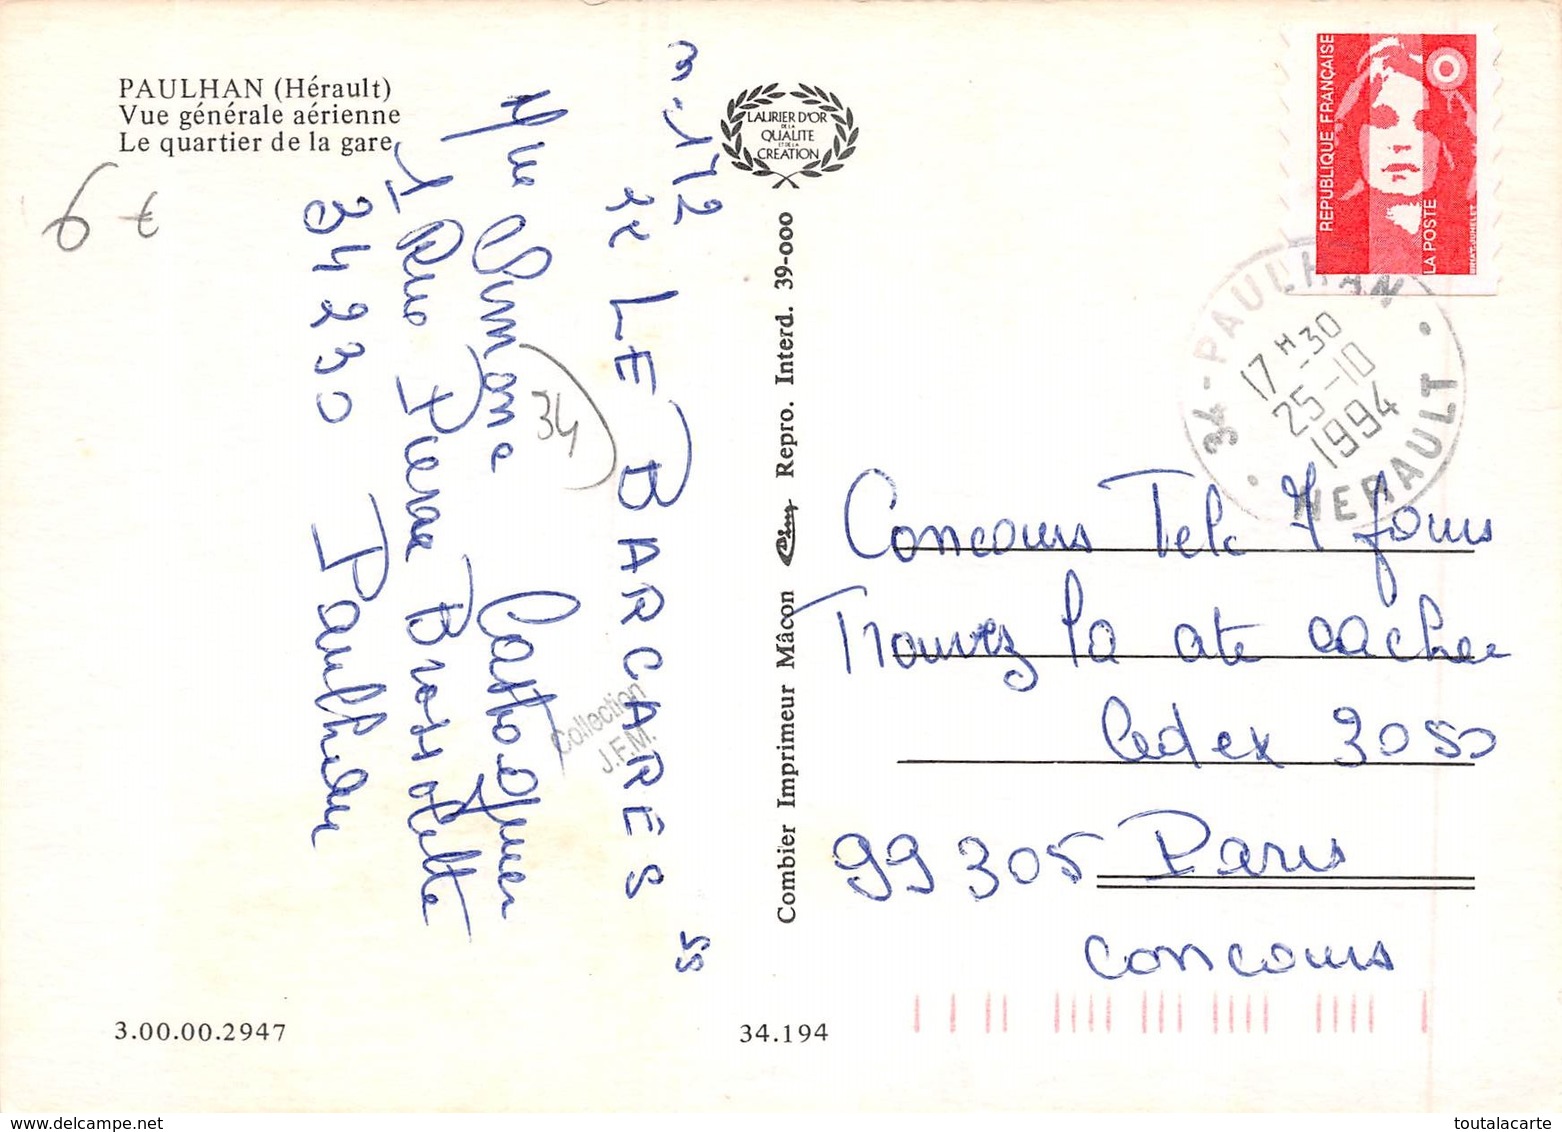 PAULHAN (Hérault)
Vue générale aérienne
Le quartier de la gare
LAURIER D'OR
DE LA
QUALITE
ET DE LA
CREATION
REPUBLIQUE FRANÇAISE
LA POSTE
34-PAULHAN
17 H-30
25-10
1994
HERAULT
LE BARCARES
Simone
1 Rue Pierre Brossolette
34230 Paulhan
34
Collection
J.F.M.
Combier Imprimeur Mâcon Repro. Interd. 39-000
Concours Tele 7 Jours
Trouvez la cachee
Cedex 3050
99305 Paris
concours
3.00.00.2947
34.194
delcampe.net
toutalacarte